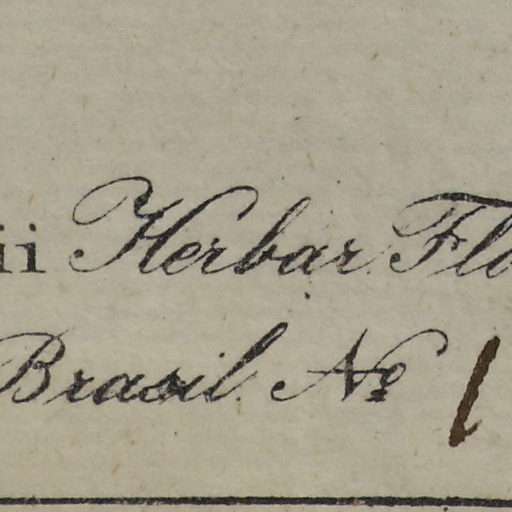 ii Herbar. Flo
Brasil. Nº 1